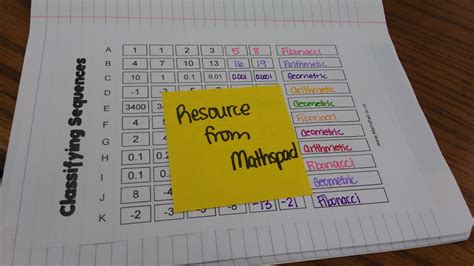 Classifying Sequences
A 1 1 2 3 5 8 Fibonacci
B 4 7 10 13 16 19 Arithmetic
C 10 1 0.1 0.01 0.001 0.0001 Geometric
D -1 Arithmetic
E 3400 Geometric
F 4 Fibonacci
G 0.1 Geometric
H 0.1 0.2 Arithmetic
I 0.1 0.1 Fibonacci
J 8 Geometric
K -2 -3 -13 -21 Fibonacci
Resource
from
Mathspad